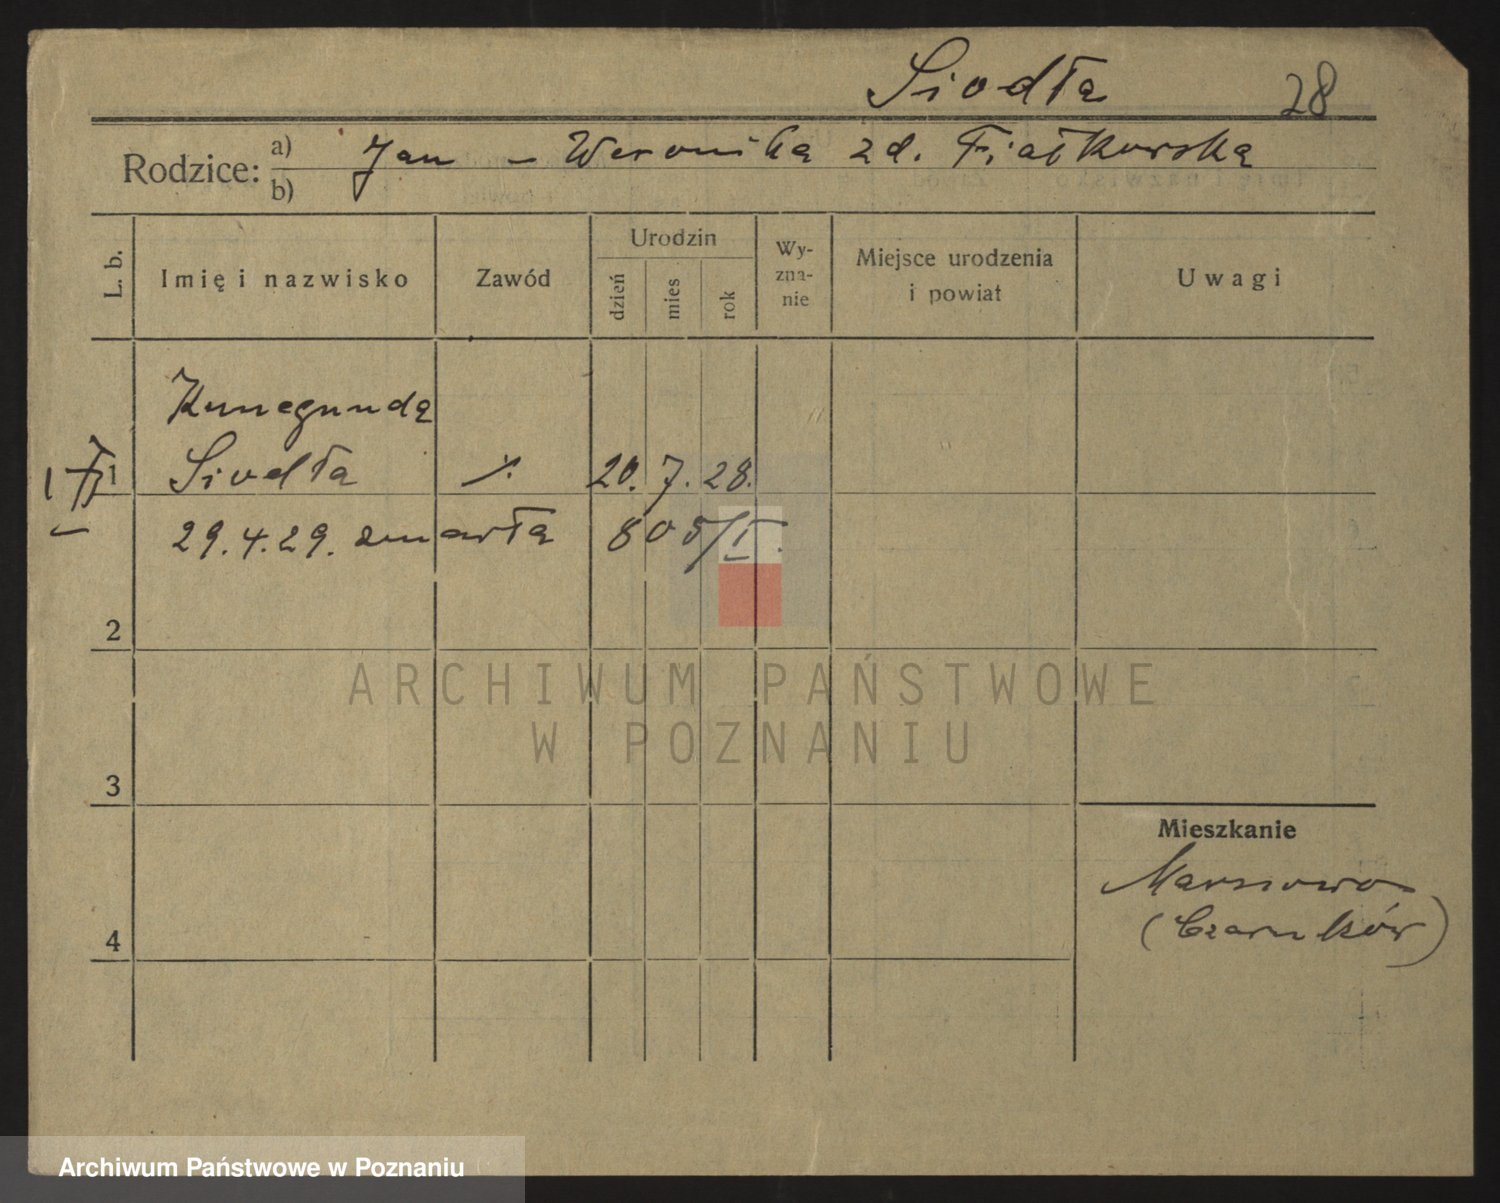 Siodła 28
Rodzice: a) Jan - Weronika zd. Fiałkowska
b)
L. b. Imię i nazwisko Zawód Urodzin dzień mies rok Wy-zna-nie Miejsce urodzenia i powiat Uwagi
Kunegunda
1 Siodła ./. 20. 7. 28.
29.4.29. zmarła 805/I.
2
ARCHIWUM PAŃSTWOWE
W POZNANIU
3
Mieszkanie
(Czarnków)
4
Archiwum Państwowe w Poznaniu